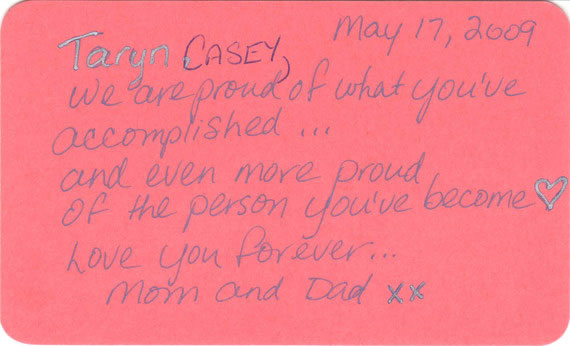 May 17, 2009
Taryn CASEY,
We are proud of what you've
accomplished ...
and even more proud
of the person you've become ♡
Love you forever...
Mom and Dad xx